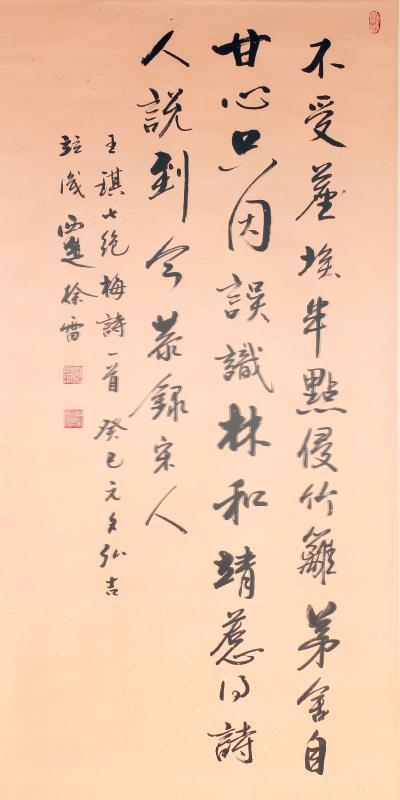 不受塵埃半點侵竹籬茅舍自
甘心只因誤識林和靖惹得詩
人說到今恭錄宋人
王琪七絕梅詩一首癸巳元夕弘吉
徐雷